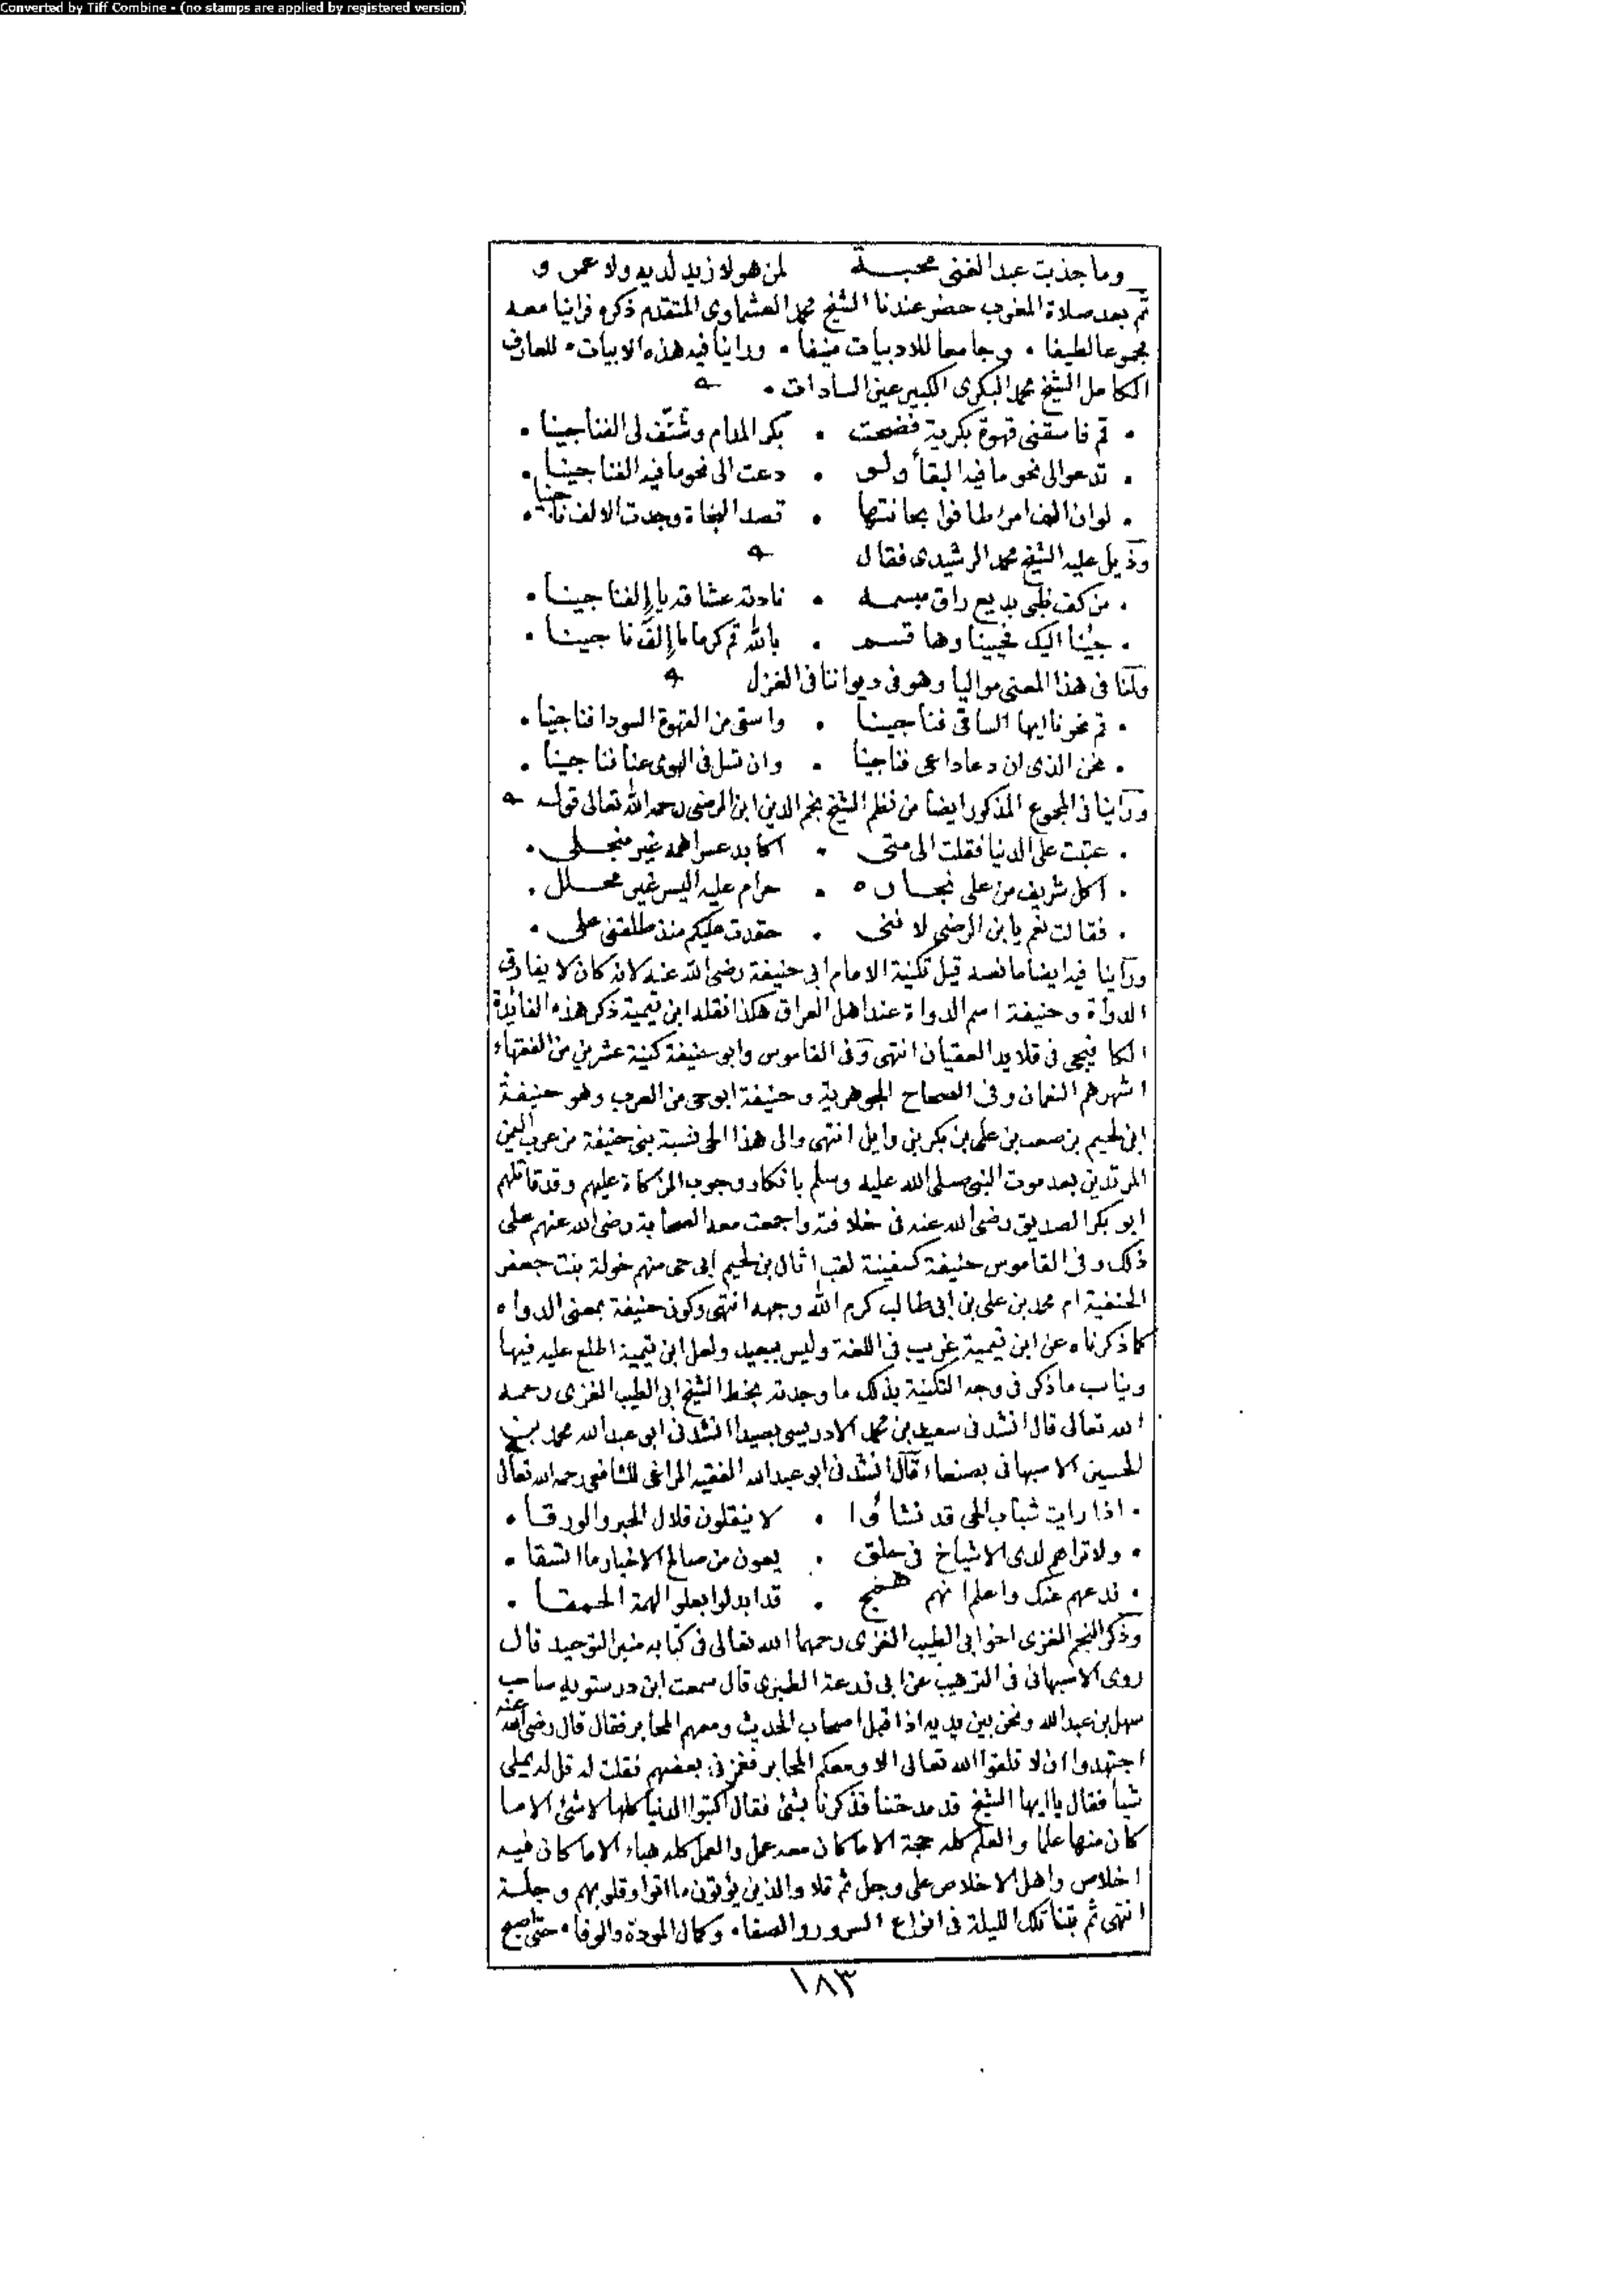 Converted by Tiff Combine - (no stamps are applied by registered version)
وما جذبت عبد الغنى محبـــة لمن هو لا زيد لديه ولا عمر و
ثم بعد صلاة المغرب حضر عندنا الشيخ محمد العشماوى المتقدم ذكره فراينا معه
مجموعا لطيفا . وجامعا للادبيات منيفا . وراينا فيه هذه الابيات . للعارف
الكامل الشيخ محمد البكرى الكبير عين السادات .
. قم فاسقنى قهوة بكرية فضحت . بكر المدام وشنّف لى الفناجينا .
. تدعو الى نحو ما فيه البقاء ولو . دعت الى نحو ما فيه الفنا جينا .
. لو ان الف امرئ طافوا بحانتها . قصد النجاة وجدت الالف ناجينا .
وذيل عليه الشيخ محمد الرشيدى فقال
. من كف ظبى بديع راق مبسمه . نادته عشاقه يا إلفنا جينا .
. جينا اليك فحيينا وها قسم . بالله قم كرما يا إلفنا جينا .
ولنا فى هذا المعنى مواليا وهو فى ديواننا فى الغزل
. قم نحونا ايها الساقى فناجينا . واسقى من القهوة السودا فناجينا .
. نحن الذى ان دعا داعى فناجينا . وان تسل فى الهوى عنا فناجينا .
وراينا فى المجموع المذكور ايضا من نظم الشيخ نجم الدين ابن الرضى رحمه الله تعالى قوله
. عتبت على الدنيا فقلت الى متى . اكابد عسرا همه غير منجلى .
. اكل شريف من على نجاره . حرام عليه اليسر غير محلل .
. فقالت نعم يا ابن الرضى لا ننى . حقدت عليكم منذ طلقنى على .
وراينا فيه ايضا ما نصه قيل تكنية الامام ابى حنيفة رضى الله عنه لانه كان لا يفارق
الدواة وحنيفة اسم الدواة عند اهل العراق هكذا نقله ابن تيمية ذكر هذه الفائدة
الكافيجى فى قلايد العقيان انتهى وفى القاموس وابو حنيفة كنية عشرين من الفقهاء
اشهرهم النعمان وفى الصحاح الجوهرية وحنيفة ابو حى من العرب وهو حنيفة
ابن لجيم بن صعب بن على بن بكر بن وايل انتهى والى هذا الحى نسبة بنى حنيفة من عرب اليمن
المرتدين بعد موت النبى صلى الله عليه وسلم بانكار وجوب الزكاة عليهم وقد قاتلهم
ابو بكر الصديق رضى الله عنه فى خلافته واجمعت معه الصحابة رضى الله عنهم على
ذلك وفى القاموس حنيفة كسفينة لقب اثال بن لجيم ابى حى منهم خولة بنت جعفر
الحنفية ام محمد بن على بن ابى طالب كرم الله وجهه انتهى وكون حنيفة بمعنى الدواه
كما ذكرناه عن ابن تيمية غريب فى اللغة وليس ببعيد ولعل ابن تيمية اطلع عليه فيها
ويناسب ما ذكر فى وجه التكنية بذلك ما وجدته بخط الشيخ ابى الطيب الغزى رحمه
الله تعالى قال انشدنى سعيد بن محمد الادريسى بصيدا انشدنى ابو عبد الله محمد بن
الحسين الاصبهانى بصنعاء قال انشدنى ابو عبد الله الفقيه المراغى للشافعى رحمه الله تعالى
. اذا رايت شباب الحى قد نشاوا . لا ينقلون قلال الحبر والورقا .
. ولا تراهم لدى الاشياخ فى حلق . يعون من صالح الاخبار ما اتسقا .
. فدعهم عنك واعلم انهم همج . قد ابدلوا بعلو الهمة الحمقا .
وذكر النجم الغزى اخو ابى الطيب الغزى رحمهما الله تعالى فى كتابه منبر التوحيد قال
روى الاصبهانى فى الترهيب عن ابى زرعة الطبرى قال سمعت ابن درستويه صاحب
سهل بن عبد الله ونحن بين يديه اذا قبل اصحاب الحديث ومعهم المحابر فقال قال رضى الله عنه
اجتهدوا ان لا تلقوا الله تعالى الا ومعكم المحابر فغمزنى بعضهم فقلت له قل له يملى
شيأ فقال يا ايها الشيخ قد مدحتنا فذكرنا بشئ فقال اكتبوا الدنيا كلها لا شئ الا ما
كان منها علما والعلم كله حجة الا ما كان معه عمل والعمل كله هباء الا ما كان فيه
اخلاص واهل الاخلاص على وجل ثم تلا والذين يؤتون ما اتوا وقلوبهم وجلة
انتهى ثم بتنا تلك الليلة فى انواع السرور والصفا . وكمال المودة والوفا . حتى اصبح
١٨٣